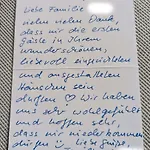 Liebe Familie
vielen vielen Dank,
dass wir die ersten
Gäste in Ihrem
wunderschönen,
liebevoll eingerichteten
und ausgestatteten
Häuschen sein
durften ♡ Wir haben
uns sehr wohlgefühlt
und hoffen sehr,
dass wir wiederkommen
dürfen ☺ Liebe Grüße,